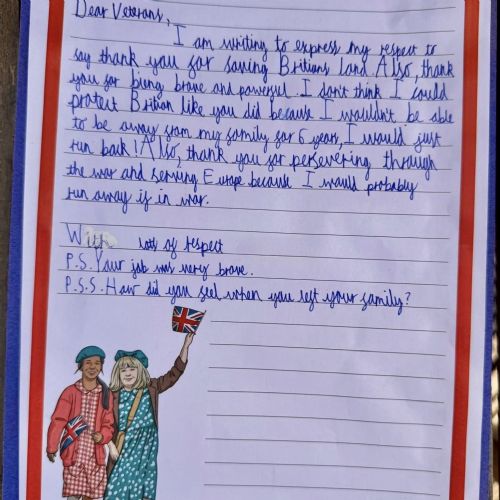 Dear Veterans,
I am writing to express my respect to
say thank you for saving Britians land. Also, thank
you for bieng brave and powerful. I don't think I could
protect Britian like you did becaus I wouldn't be able
to be away from my family for 6 years, I would just
run back! Also, thank you for persevering through
the war and serving Europe because I would probably
run away if in war.
With lots of respect
P.S. Your job was very brave.
P.S.S. How did you feel when you left your family?